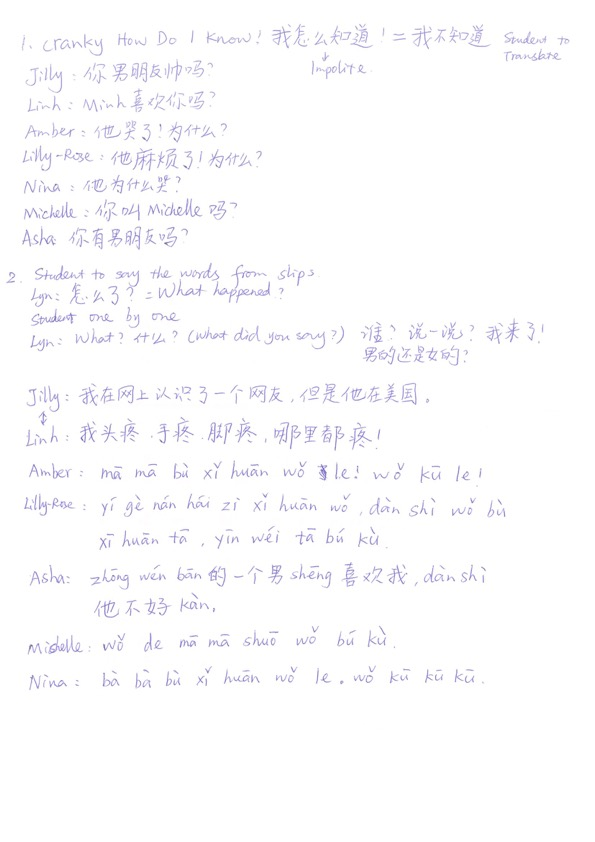 1. cranky How Do I Know! 我怎么知道！= 我不知道 Student to Translate
Impolite.
Jilly: 你男朋友帅吗？
Linh: Minh 喜欢你吗？
Amber: 他哭了！为什么？
Lilly-Rose: 他麻烦了！为什么？
Nina: 他为什么哭？
Michelle: 你叫 Michelle 吗？
Asha: 你有男朋友吗？
2. Student to say the words from slips
Lyn: 怎么了？= What happened?
Student one by one
Lyn: What? 什么？(What did you say?) 谁？说一说？我来了！
男的还是女的？
Jilly: 我在网上认识了一个网友，但是他在美国。
Linh: 我头疼.手疼.脚疼，哪里都疼！
Amber: mā mā bù xǐ huān wǒ le! wǒ kū le!
Lilly-Rose: yí gè nán hái zi xǐ huān wǒ, dàn shì wǒ bù
xǐ huān tā, yīn wéi tā bú kù.
Asha: zhōng wén bān 的一个男 shēng 喜欢我, dàn shì
他不好 kàn.
Michelle: wǒ de mā mā shuō wǒ bú kù.
Nina: bà bà bù xǐ huān wǒ le. wǒ kū kū kū.